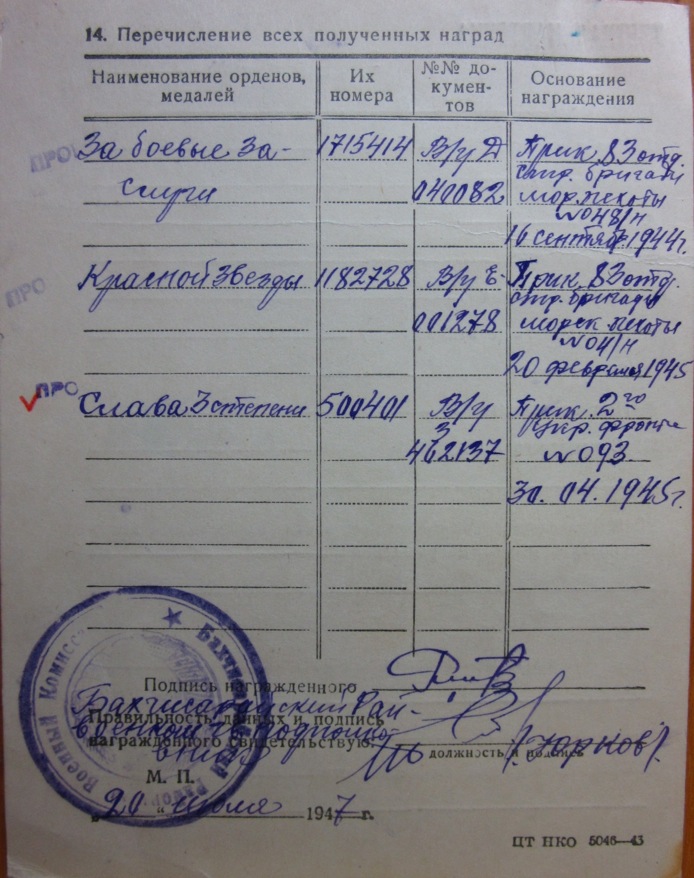 14. Перечисление всех полученных наград
Наименование орденов, медалей
Их номера
№№ документов
Основание награждения
За боевые За-
слуги
1715414
В/у Д
040082
Прик. 83 отд.
стр. бригады
мор. пехоты
№ 048/н
16 сентябр 1944г.
ПРО
Красной Звезды
1182728
В/у Е
001278
Прик. 83 отд.
стр. бригады
морск. пехоты
№ 04/н
20 февраля 1945
ПРО
Слава 3 степени
500401
В/у
З
462137
Прик. 2го
Укр. фронта
№ 093
30. 04. 1945г.
ПРО
Подпись награжденного
Правильность данных и подпись
награжденного свидетельствую:
Бахчисарайский Рай-
военком подполко
вник
должность и подпись
М. П.
„20" июля 1947 г.
Военный Комисса
ЦТ НКО 5046—43